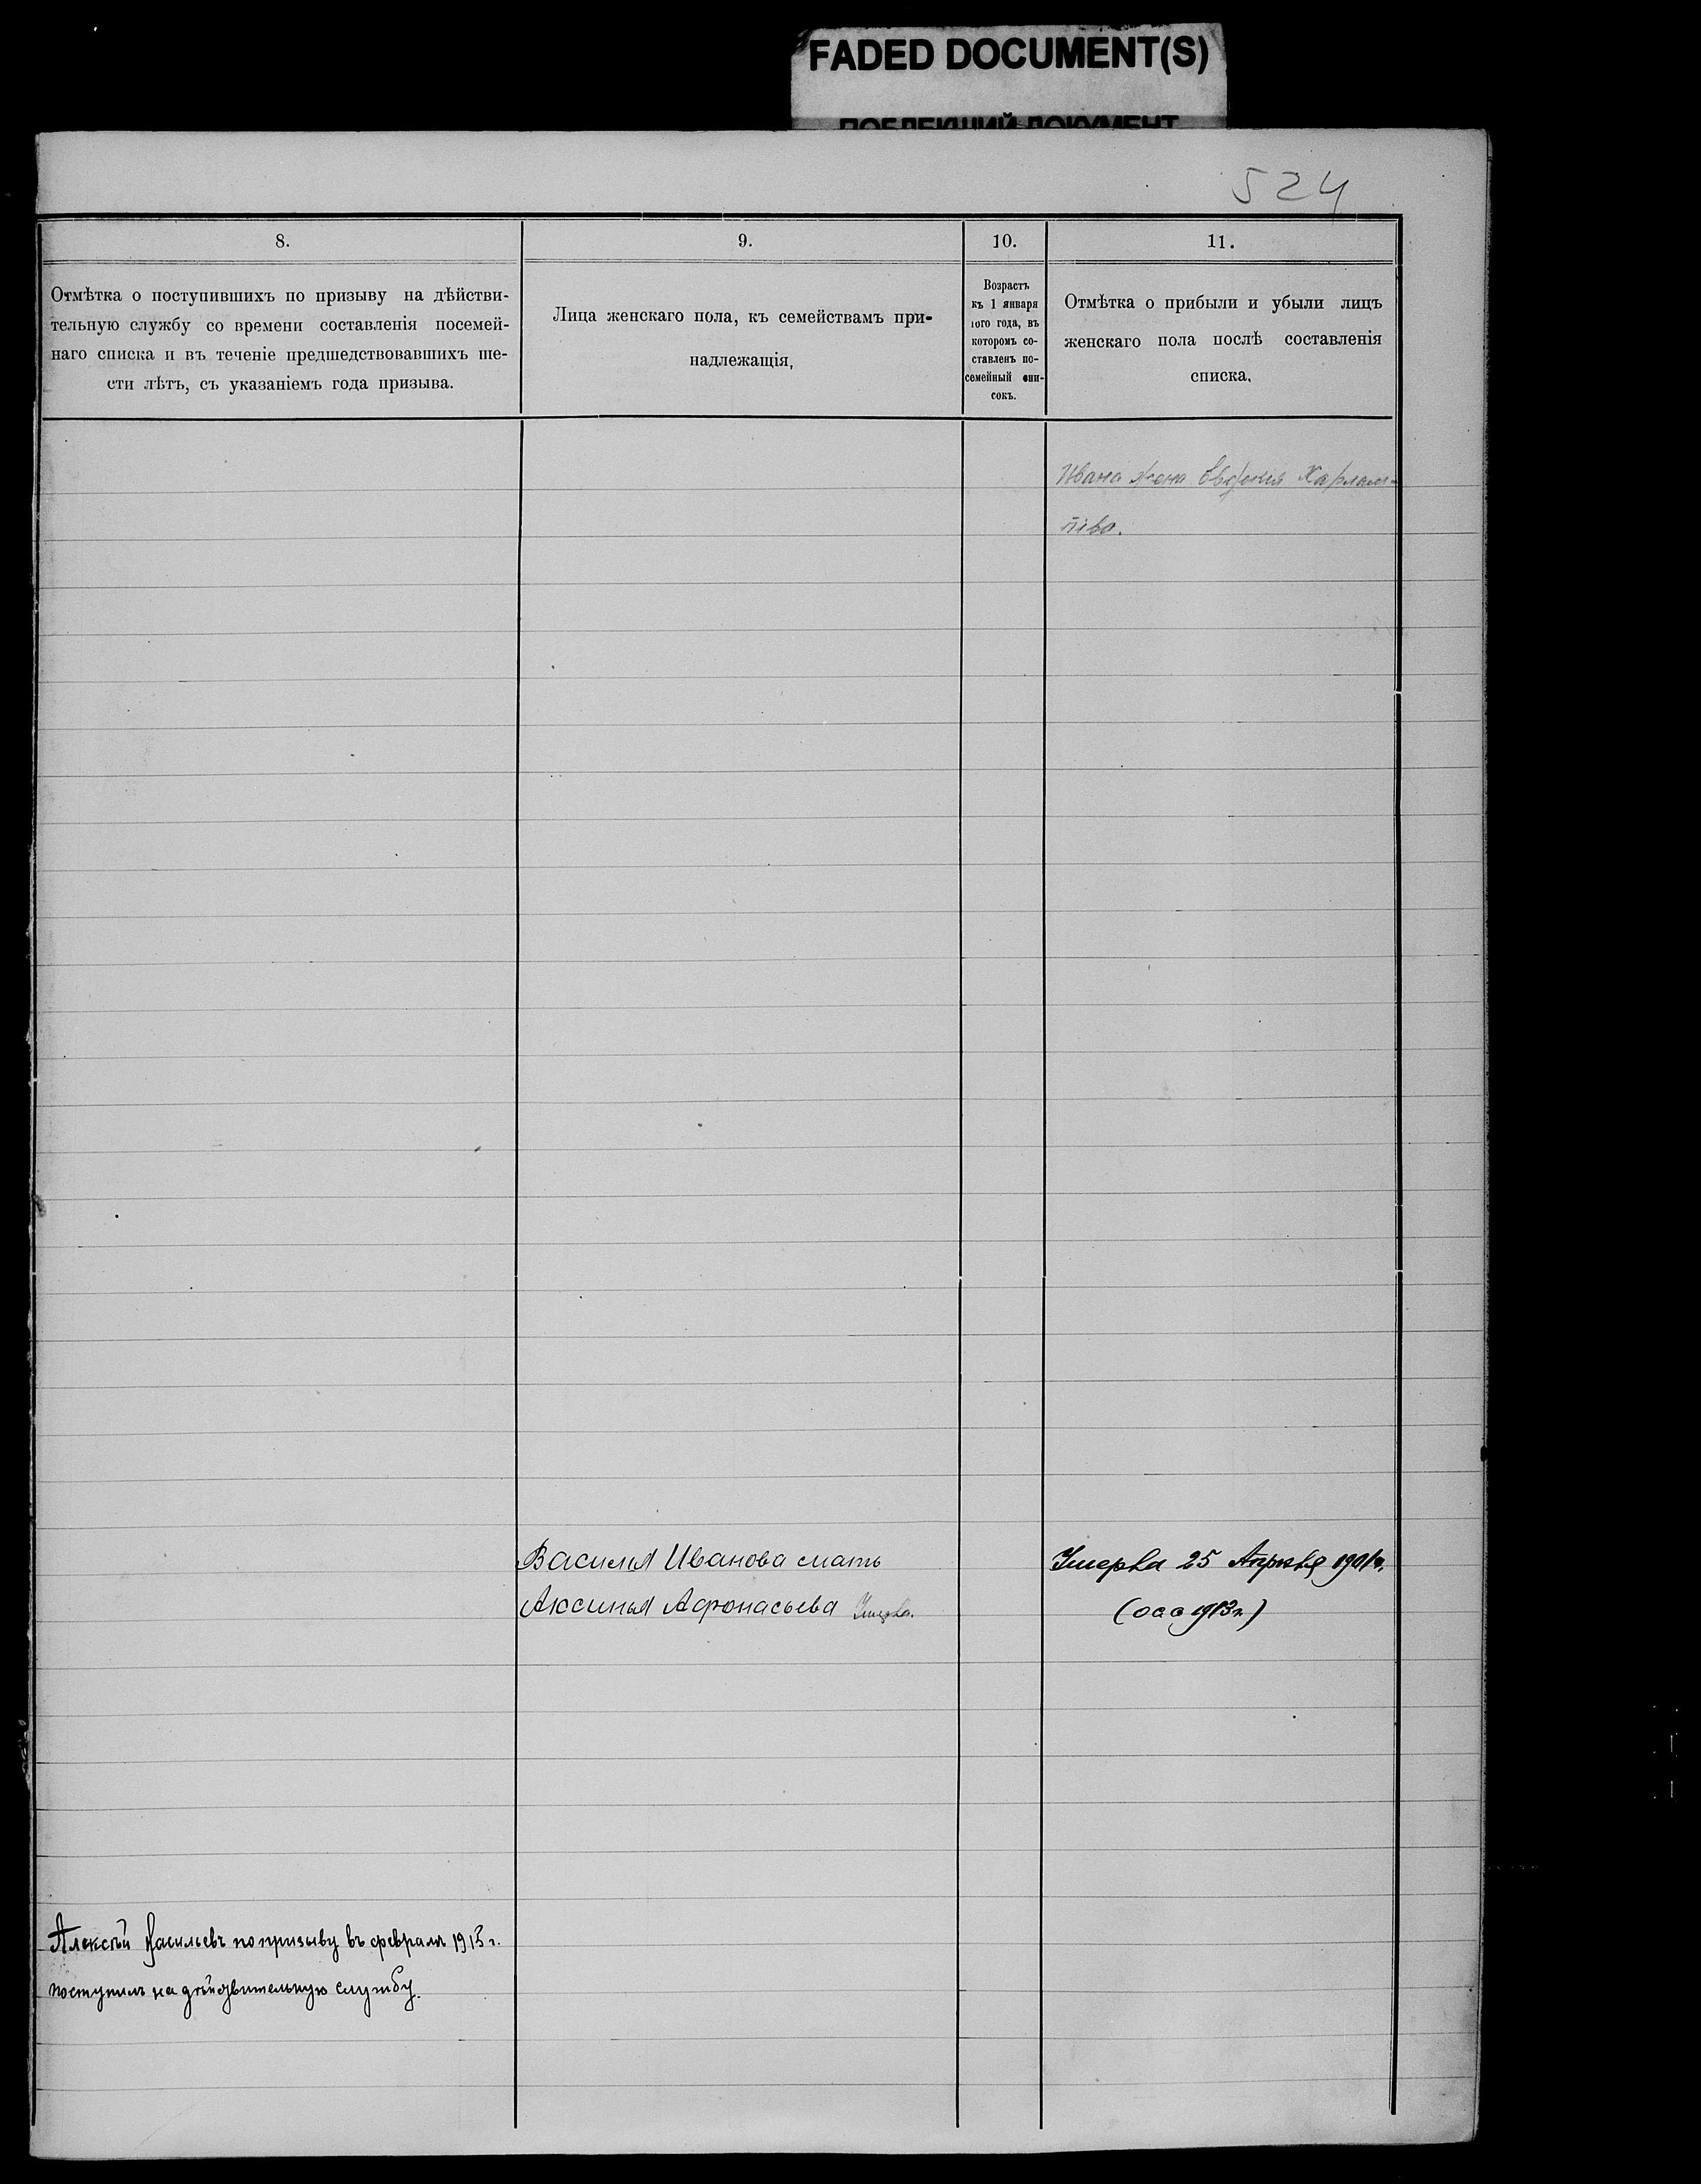 FADED DOCUMENT(S)
ПОБЛЕКШИЙ ДОКУМЕНТ
524
8.
9.
10.
11.
Отмѣтка о поступившихъ по призыву на дѣйстви-
тельную службу со времени составленія посемей-
наго списка и въ теченіе предшедствовавшихъ ше-
сти лѣтъ, съ указаніемъ года призыва.
Лица женскаго пола, къ семействамъ при-
надлежащія,
Возрастъ
къ 1 января
того года, въ
которомъ со-
ставленъ по-
семейный спи-
сокъ.
Отмѣтка о прибыли и убыли лицъ
женскаго пола послѣ составленія
списка.
Ивана жена Харлам-
піева.
Василія Иванова мать
Аксинья Афонасьева Умерла.
Умерла 25 Апрѣля 1901 г.
1913 г.)
Алексѣй Васильевъ по призыву въ февралѣ 1915 г.
поступилъ на дѣйствительную службу.